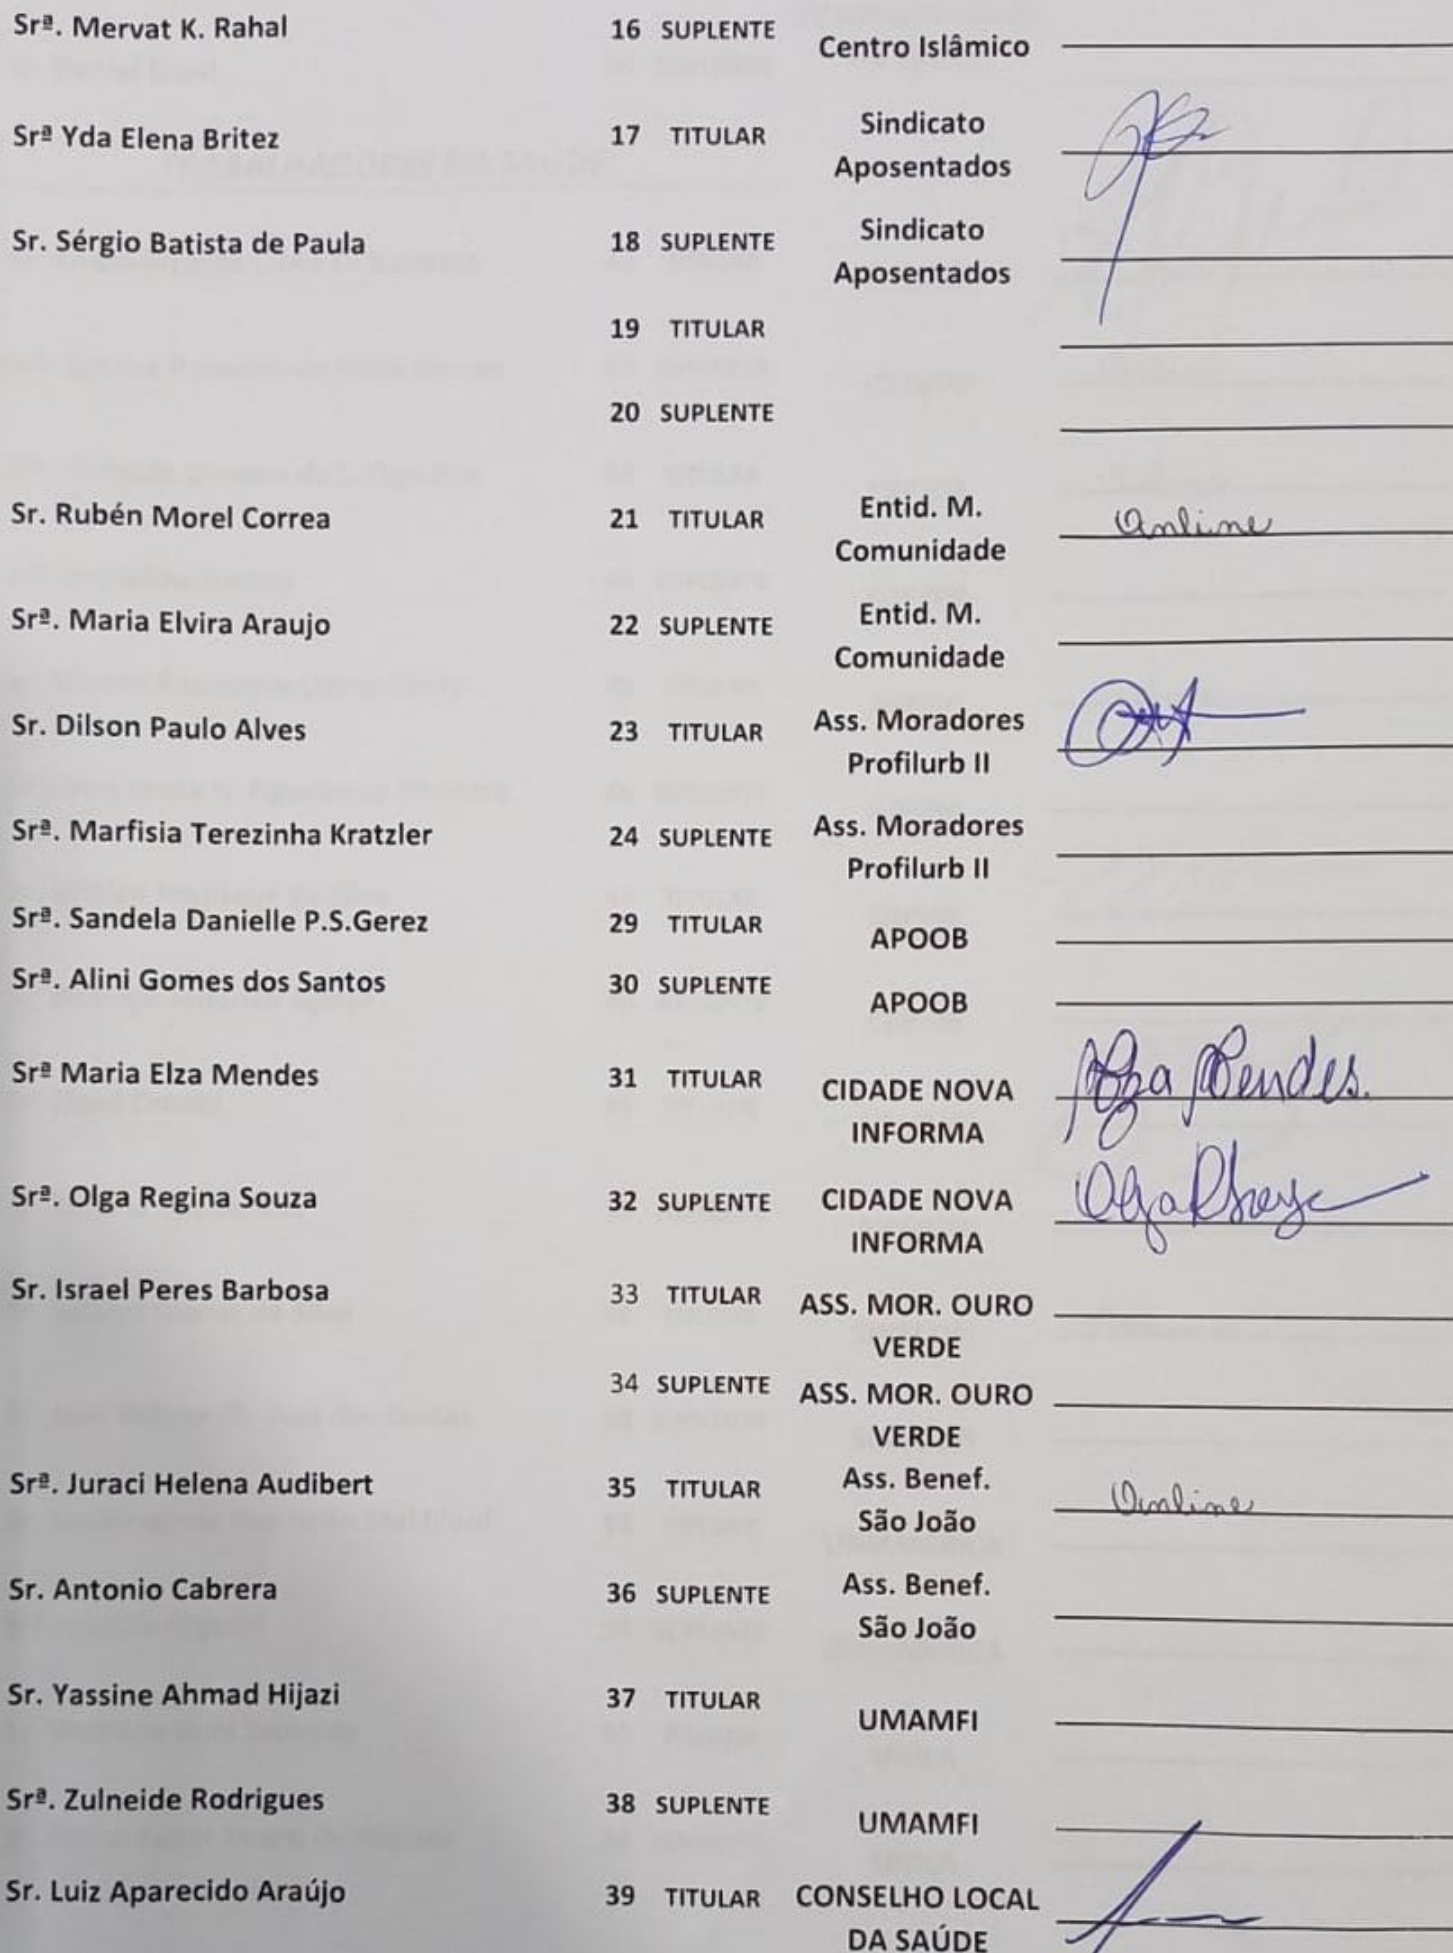 Srª. Mervat K. Rahal 16 SUPLENTE Centro Islâmico
Srª Yda Elena Britez 17 TITULAR Sindicato
Aposentados
Sr. Sérgio Batista de Paula 18 SUPLENTE Sindicato
Aposentados
19 TITULAR
20 SUPLENTE
Sr. Rubén Morel Correa 21 TITULAR Entid. M. Online
Comunidade
Srª. Maria Elvira Araujo 22 SUPLENTE Entid. M.
Comunidade
Sr. Dilson Paulo Alves 23 TITULAR Ass. Moradores
Profilurb II
Srª. Marfisia Terezinha Kratzler 24 SUPLENTE Ass. Moradores
Profilurb II
Srª. Sandela Danielle P.S.Gerez 29 TITULAR APOOB
Srª. Alini Gomes dos Santos 30 SUPLENTE APOOB
Srª Maria Elza Mendes 31 TITULAR CIDADE NOVA Elza Mendes.
INFORMA
Srª. Olga Regina Souza 32 SUPLENTE CIDADE NOVA Olga
INFORMA
Sr. Israel Peres Barbosa 33 TITULAR ASS. MOR. OURO
VERDE
34 SUPLENTE ASS. MOR. OURO
VERDE
Srª. Juraci Helena Audibert 35 TITULAR Ass. Benef. Online
São João
Sr. Antonio Cabrera 36 SUPLENTE Ass. Benef.
São João
Sr. Yassine Ahmad Hijazi 37 TITULAR UMAMFI
Srª. Zulneide Rodrigues 38 SUPLENTE UMAMFI
Sr. Luiz Aparecido Araújo 39 TITULAR CONSELHO LOCAL
DA SAÚDE